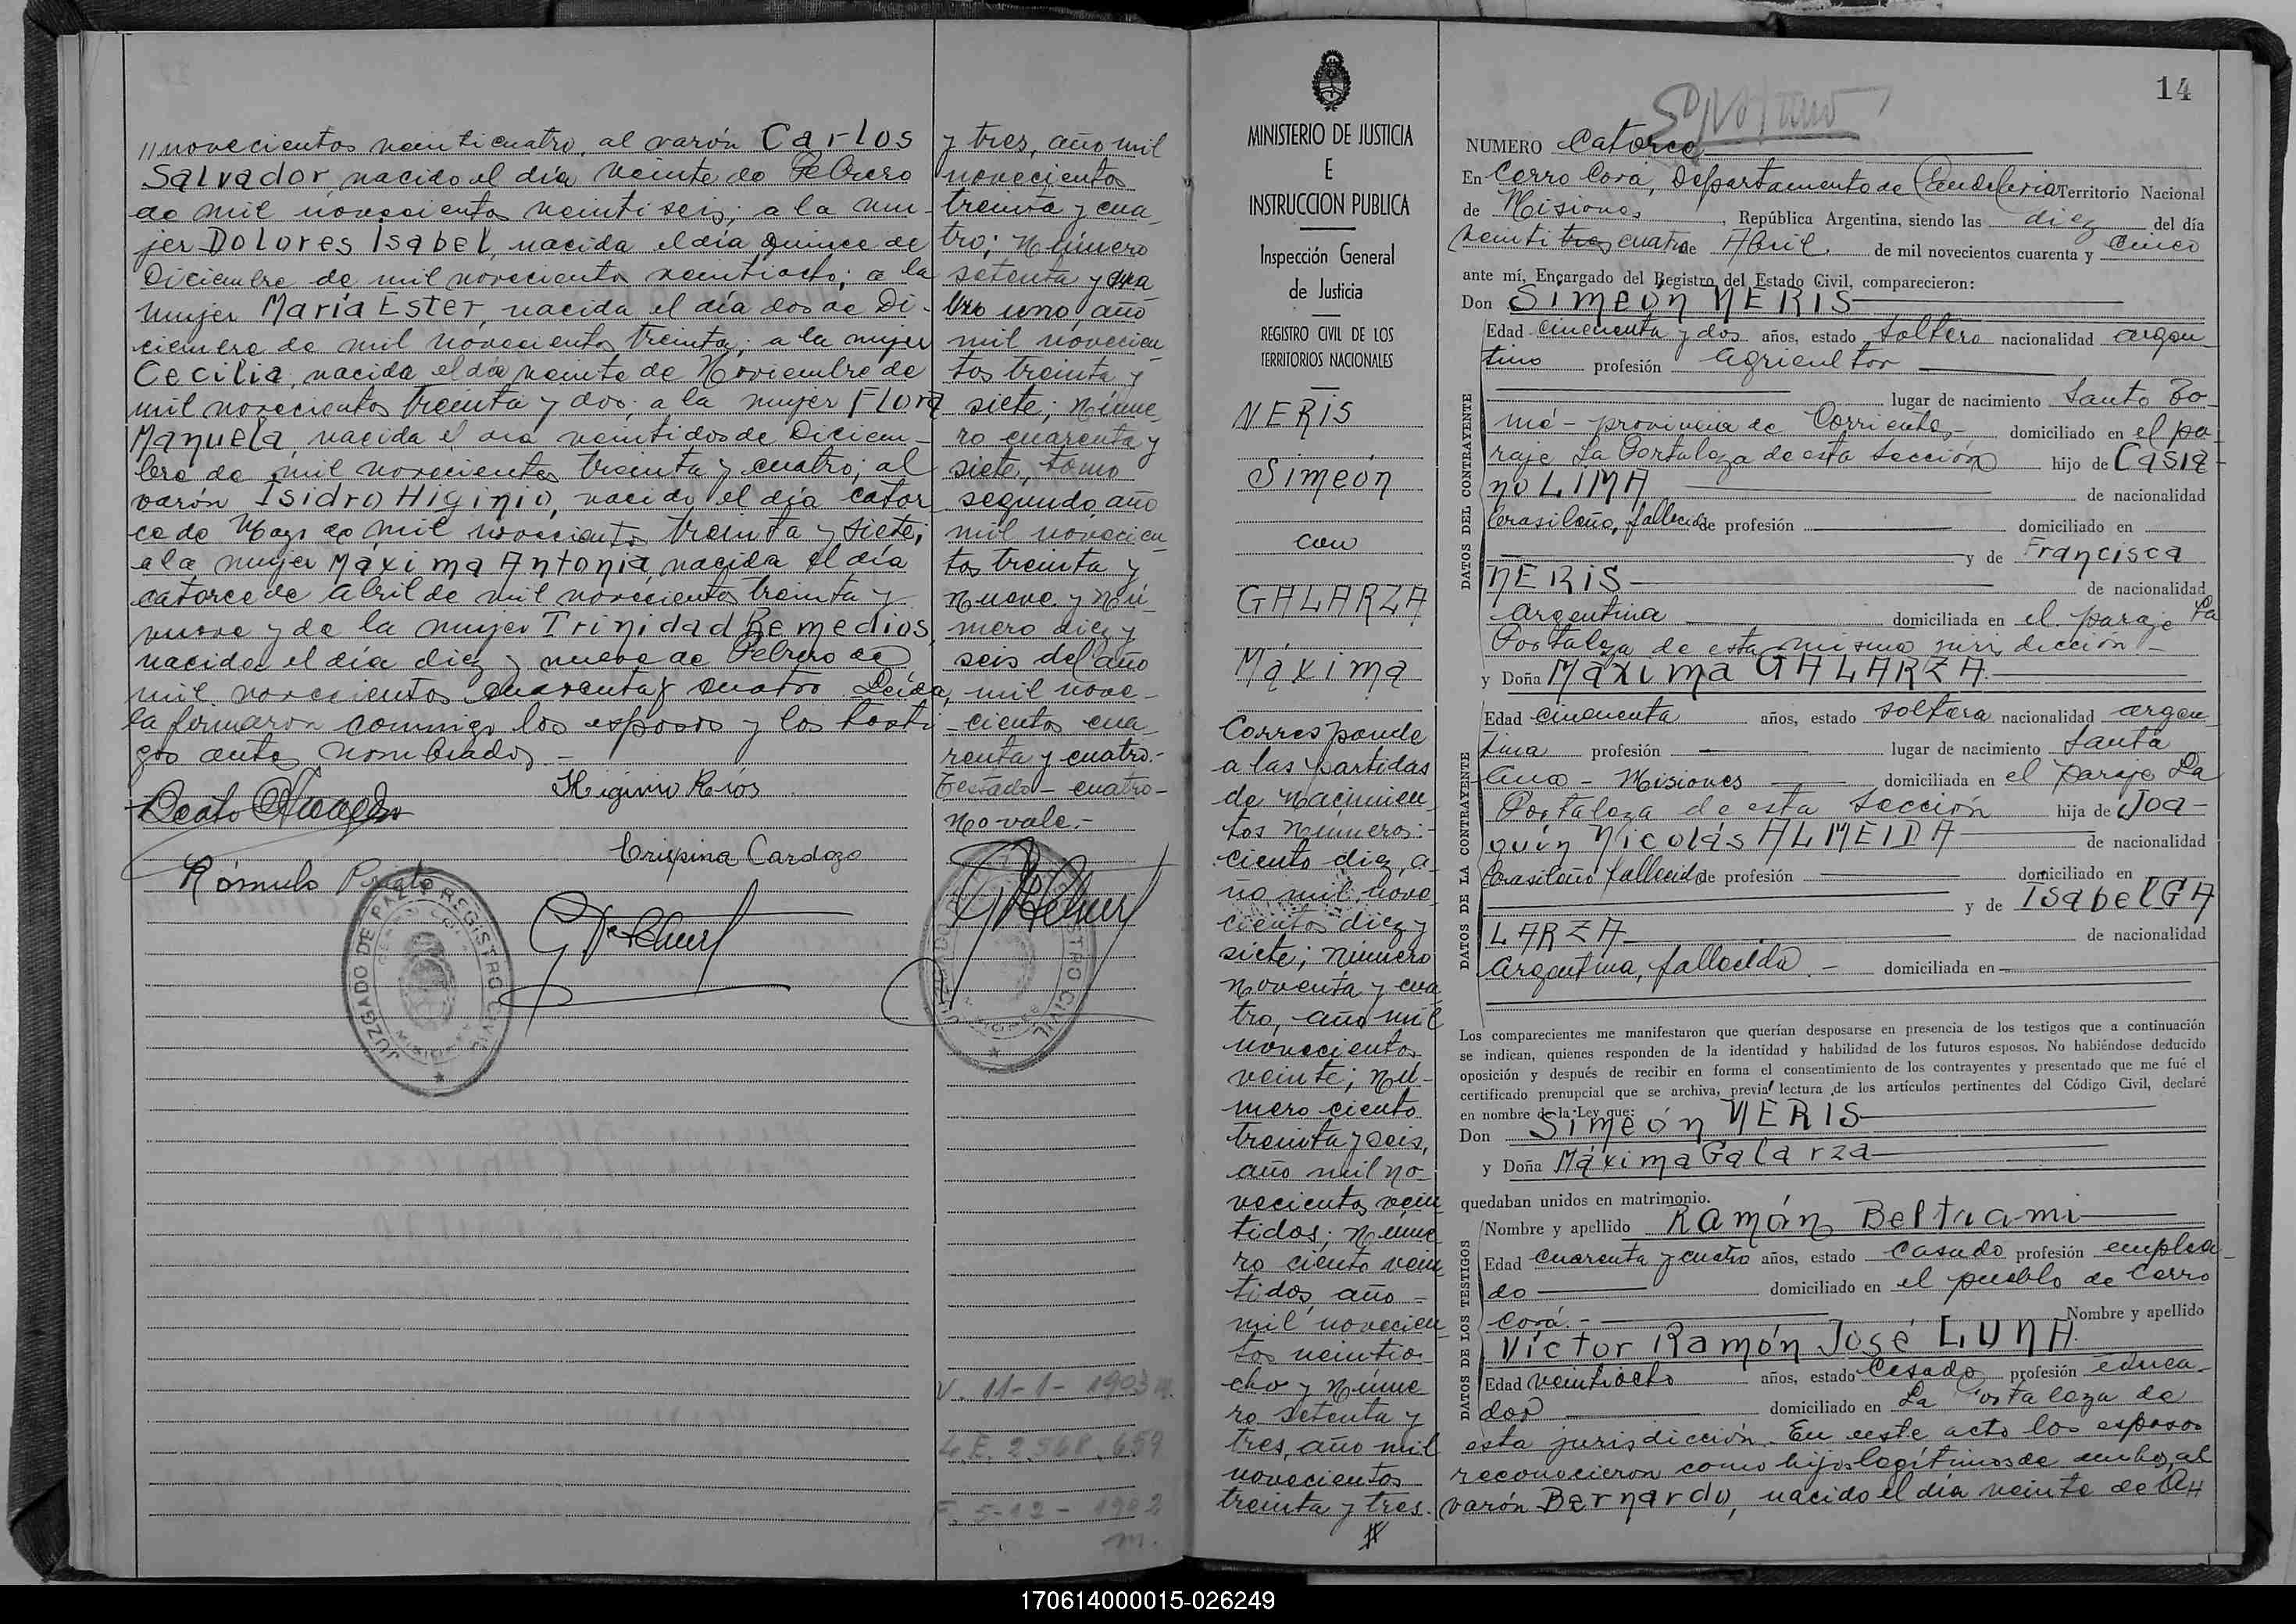 //novecientos veinticuatro, al varón Carlos
Salvador, nacido el día veinte de Febrero
de mil novecientos veintiseis; a la mu-
jer Dolores Isabel, nacida el día quince de
Diciembre de mil novecientos veintiocho; a la
mujer María Ester, nacida el día dos de Di-
ciembre de mil novecientos treinta; a la mujer
Cecilia, nacida el día veinte de Noviembre de
mil novecientos treinta y dos; a la mujer Flora
Manuela, nacida el día veintidos de Diciem-
bre de mil novecientos treinta y cuatro; al
varón Isidro Higinio, nacido el día cator
ce de Mayo de mil novecientos treinta y siete;
a la mujer Máxima Antonia, nacida el día
catorce de Abril de mil novecientos treinta y
nueve y de la mujer Trinidad Remedios,
nacida el día diez y nueve de Febrero de
mil novecientos cuarenta y cuatro. Leída,
la firmaron conmigo los esposos y los testi
gos antes nombrados.-
Higinio Ríos
Crispina Cardozo
Rómulo Prieto
JUZGADO DE PAZ Y REGISTRO CIVIL
y tres, año mil
novecientos
treinta y cua
tro; Número
setenta y
uno, año
mil novecien
tos treinta y
siete; Núme
ro cuarenta y
siete, tomo
segundo, año
mil novecien
tos treinta y
nueve y Nú-
mero diez y
seis del año
mil nove-
cientos cua
renta y cuatro.-
Testado - cuatro-
No vale.-
V. 11-1- 1903
F. 5-12-
m.
MINISTERIO DE JUSTICIA
E
INSTRUCCION PUBLICA
Inspección General
de Justicia
REGISTRO CIVIL DE LOS
TERRITORIOS NACIONALES
NERIS
Simeón
con
GALARZA
Máxima
Corresponde
a las partidas
de Nacimien
tos Números:-
ciento diez, a-
ño mil nove
cientos diez y
siete; número
noventa y cua
tro, año mil
novecientos
veinte; Nú-
mero ciento
treinta y seis,
año mil no-
vecientos vein
tidos; Núme
ro ciento vein
tidos, año -
mil novecien
tos veintio-
cho y Núme
ro setenta y
tres, año mil
novecientos
treinta y tres.
14
NUMERO Catorce
En Cerro Corá, Departamento de Candelaria Territorio Nacional
de Misiones, República Argentina, siendo las diez del día
veinti tres cuatro de Abril de mil novecientos cuarenta y cinco
ante mí, Encargado del Registro del Estado Civil, comparecieron:
Don Simeón NERIS
DATOS DEL CONTRAYENTE
Edad cincuenta y dos años, estado soltero nacionalidad argen
tino profesión agricultor
lugar de nacimiento Santo To-
mé - provincia de Corrientes,- domiciliado en el pa-
raje La Fortaleza de esta sección hijo de Casia-
no LIMA de nacionalidad
brasileño, fallecido de profesión domiciliado en
y de Francisca
NERIS de nacionalidad
argentina domiciliada en el paraje La
Fortaleza de esta misma jurisdicción.-
y Doña Máxima GALARZA
DATOS DE LA CONTRAYENTE
Edad cincuenta años, estado soltera nacionalidad argen
tina profesión lugar de nacimiento Santa
Ana - Misiones domiciliada en el paraje La
Fortaleza de esta sección hija de Joa-
quín Nicolás ALMEIDA de nacionalidad
brasileño fallecido de profesión domiciliado en
y de Isabel GA
LARZA de nacionalidad
argentina, fallecida.- domiciliada en
Los comparecientes me manifestaron que querían desposarse en presencia de los testigos que a continuación
se indican, quienes responden de la identidad y habilidad de los futuros esposos. No habiéndose deducido
oposición y después de recibir en forma el consentimiento de los contrayentes y presentado que me fué el
certificado prenupcial que se archiva, previa lectura de los artículos pertinentes del Código Civil, declaré
en nombre de la Ley que:
Don Simeón NERIS
y Doña Máxima Galarza
quedaban unidos en matrimonio.
DATOS DE LOS TESTIGOS
Nombre y apellido Ramón Beltrami
Edad cuarenta y cuatro años, estado casado profesión emplea-
do domiciliado en el pueblo de Cerro
Corá.- Nombre y apellido
Víctor Ramón José LUNA
Edad veintiocho años, estado Casado profesión educa-
dor domiciliado en La Fortaleza de
esta jurisdicción. En este acto los esposos
reconocieron como hijos legítimos de ambos, al
varón Bernardo, nacido el día veinte de
170614000015-026249